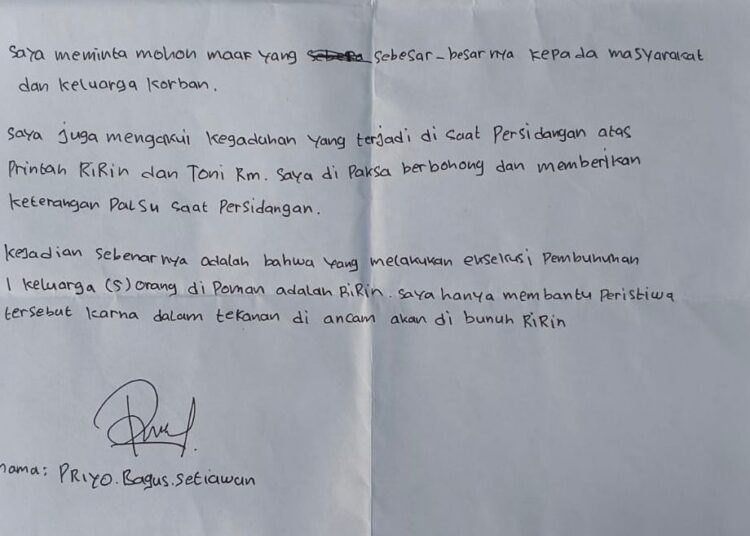 Saya meminta mohon maaf yang sebesar-besarnya kepada masyarakat
dan keluarga korban.
Saya juga mengakui kegaduhan yang terjadi di saat Persidangan atas
Printah RiRin dan Toni Rm. Saya di Paksa berbohong dan memberikan
keterangan PaLSu Saat Persidangan.
Kejadian Sebenarnya adalah bahwa yang melakukan eksekusi Pembunuhan
1 keluarga (5) orang di Poman adalah RiRin. Saya hanya membantu Peristiwa
tersebut karna dalam tekanan di ancam akan di bunuh RiRin
nama: PRIYO.Bagus.Setiawan